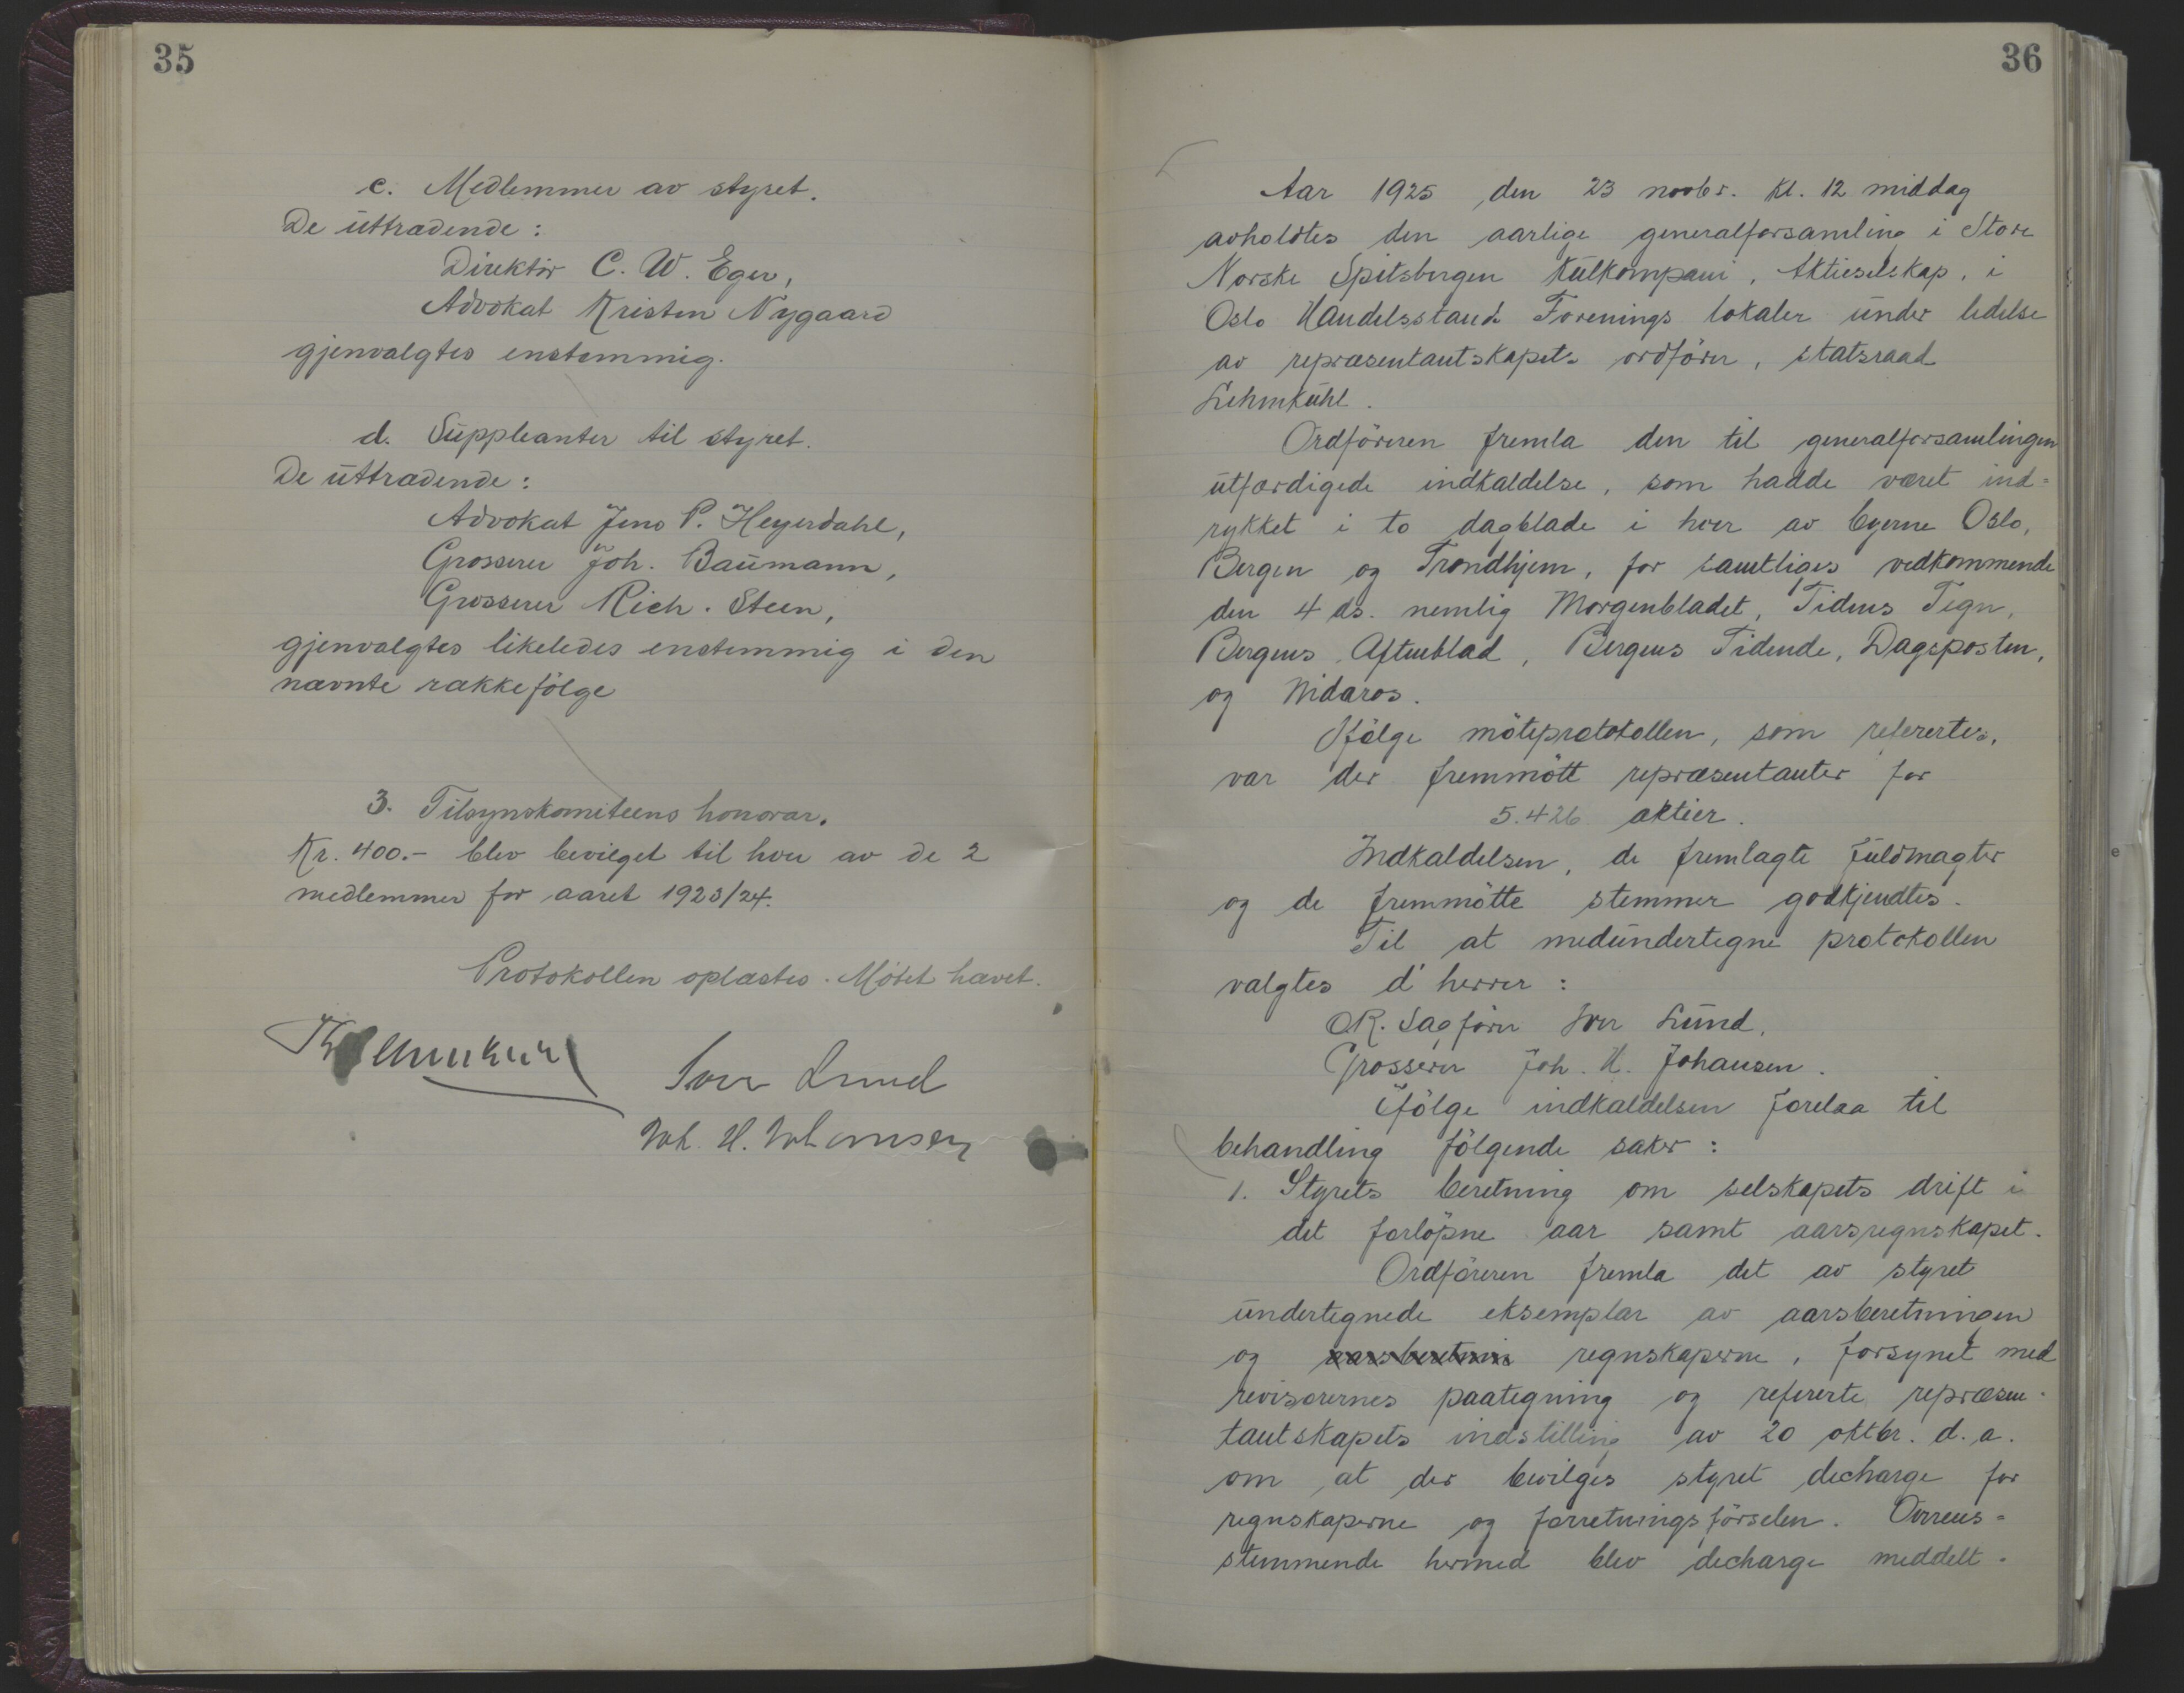 35
c. Medlemmer av styret.
De uttrædende:
Direktør C. W. Eger,
Advokat Kristen Nygaard
gjenvalgtes enstemmig.
d. Suppleanter til styret.
De uttrædende:
Advokat Jens P. Heyerdahl,
Grosserer Joh. Baumann,
Grosserer Rich. Steen,
gjenvalgtes likeledes enstemmig i den
nævnte rækkefölge
3. Tilsynskomiteens honorar.
Kr. 400.- blev bevilget til hver av de 2
medlemmer for aaret 1923/24.
Protokollen oplæstes. Mötet hævet.
Iver Lund
Joh. H. Johansen
36
Aar 1925 den 23 novbr. kl. 12 middag
avholdtes den aarlige generalforsamling i Store
Norske Spitsbergen Kulkompani, Aktieselskap, i
Oslo Handelsstands Forenings lokaler under ledelse
av repræsentantskapets ordförer, statsraad
Lehmkuhl.
Ordföreren fremla den til generalforsamlingen
utfærdigede indkaldelse, som hadde været ind=
rykket i to dagblade i hver av byerne Oslo,
Bergen og Trondhjem, for samtliges vedkommende
den 4 ds. nemlig Morgenbladet, Tidens Tegn,
Bergens Aftenblad, Bergens Tidende, Dagsposten,
og Nidaros.
Ifölge möteprotokollen, som referertes,
var der fremmött repræsentanter for
5.426 aktier.
Indkaldelsen, de fremlagte fuldmagter
og de fremmötte stemmer godkjendtes.
Til at medundertegne protokollen
valgtes d'herrer:
O.R. Sagförer Iver Lund,
Grosserer Joh. H. Johansen.
Ifölge indkaldelsen forelaa til
behandling fölgende saker:
1. Styrets beretning om selskapets drift i
det forlöpne aar samt aarsregnskapet.
Ordföreren fremla det av styret
undertegnede eksemplar av aarsberetningen
og aarsberetnin regnskaperne, forsynet med
revisorernes paategning og refererte repræsen-
tantskapets indstilling av 20 oktbr. d.a.
om at der bevilges styret decharge for
regnskaperne og forretningsförselen. Overens=
stemmende hermed blev decharge meddelt.